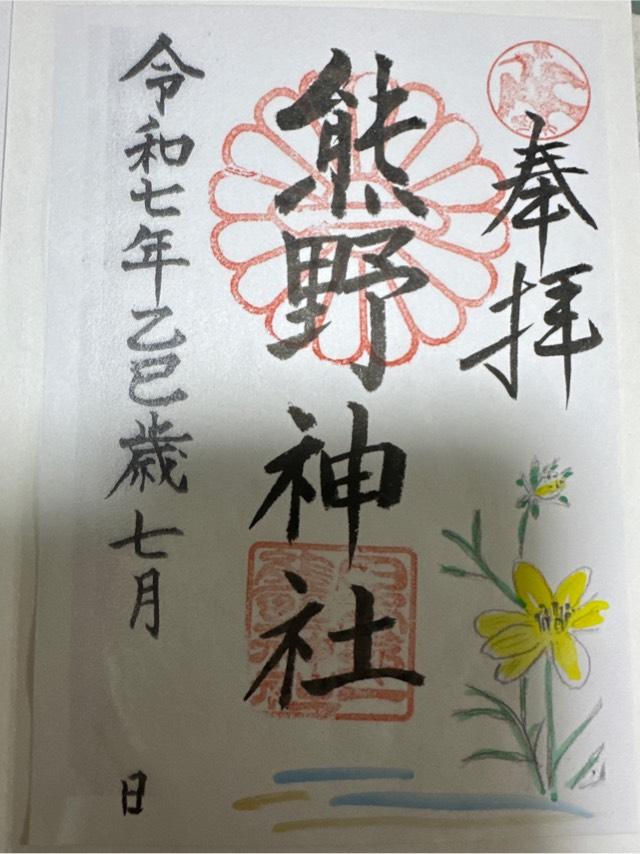 奉拝
熊野神社
令和七年乙巳歳七月 日